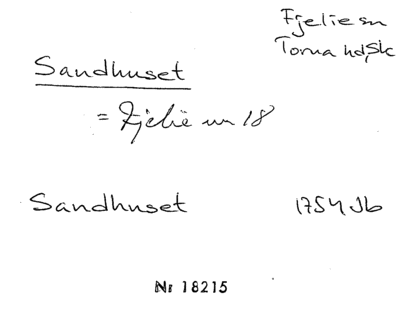 Fjelie sn
Torna hd, Sk
Sandhuset
= Fjelie nr 18
Sandhuset 1754 Jb
Nr 18215